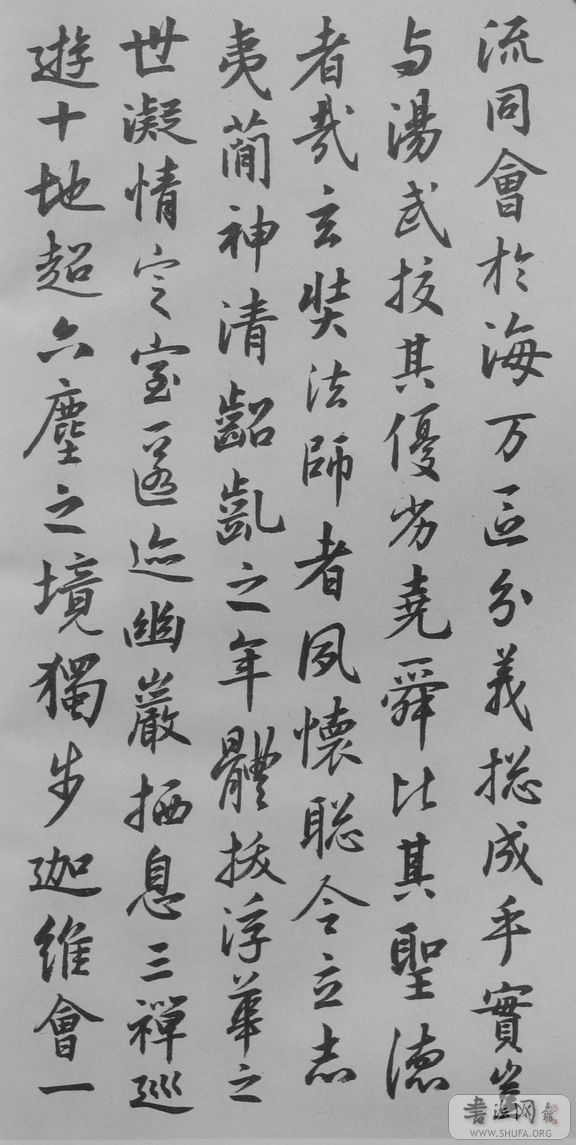 流同會於海万區分義揔成乎實豈
与湯武挍其優劣堯舜比其聖德
者哉玄奘法師者夙懷聡令立志
夷蕑神清齠齔之年體拔浮華之
世凝情定室匿迹幽巖栖息三禪巡
遊十地超六塵之境獨步迦維會一
書法网
WWW.SHUFA.ORG